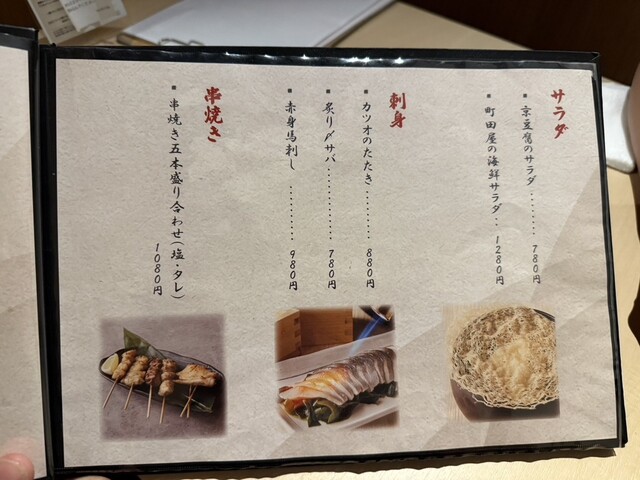 サラダ
▪ 京豆腐のサラダ........780円
▪ 町田屋の海鮮サラダ..1280円
刺身
▪ カツオのたたき.........880円
▪ 炙り〆サバ...........780円
▪ 赤身馬刺し..........980円
串焼き
▪ 串焼き五本盛り合わせ(塩・タレ)
1080円